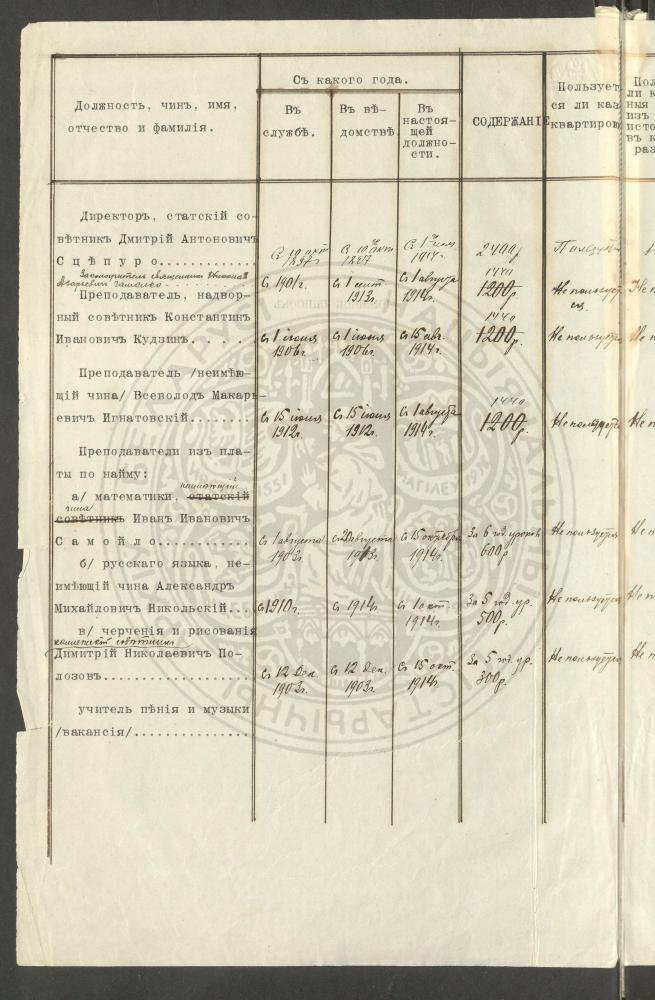 Съ какого года.
Должность, чинъ, имя,
отчество и фамилія.
Въ
службѣ.
Въ вѣ-
домствѣ
Въ
настоя-
щей
должно-
сти.
СОДЕРЖАНІЕ
Пользует
ся ли каз
квартирою
Директоръ, статскій со-
вѣтникъ Дмитрій Антоновичъ
Сцѣпуро.............
2400р
Законоучитель священникъ
Съ 1901г.
Съ 1 сент
1913г.
Съ 1 августа
1914г.
1440
1200р
Не пользует
ся.
Преподаватель, надвор-
ный совѣтникъ Константинъ
Ивановичъ Кудзинъ. . . .
Съ 1 іюля
1906г.
Съ 1 іюля
1906г.
Съ 15 авг.
1914г.
1440
1200р.
Не пользует
Преподаватель /неимѣю-
щій чина/ Всеволодъ Макарь-
евичъ Игнатовскій........
Съ 15 іюля
1912г.
Съ 15 іюля
1912г.
Съ 1 августа
1914г.
1440
1200р.
Не пользуется
Преподаватели изъ пла-
ты по найму:
а/ математики, статскій
неимѣющій
чина
совѣтникъ Иванъ Ивановичъ
Самойло.............
Съ 1 августа
1903г.
августа
1903г.
Съ 15 октября
1914г.
За 6 год. уроковъ
600р.
Не пользуется
б/ русскаго языка, не-
имѣющій чина Александръ
Михайловичъ Никольскій...
Съ 1910г.
Съ 1914г.
Съ 1 окт.
1914г.
За 5 год. ур.
500р.
Не пользуется
в/ черченія и рисованія
коллежскій совѣтникъ
Димитрій Николаевичъ По-
лозовъ...................
Съ 12 Дек.
1903г.
Съ 12 Дек.
1903г.
Съ 15 окт
1914г.
За 5 год. ур.
300р.
Не пользуется
учитель пѣнія и музыки
/вакансія/...............